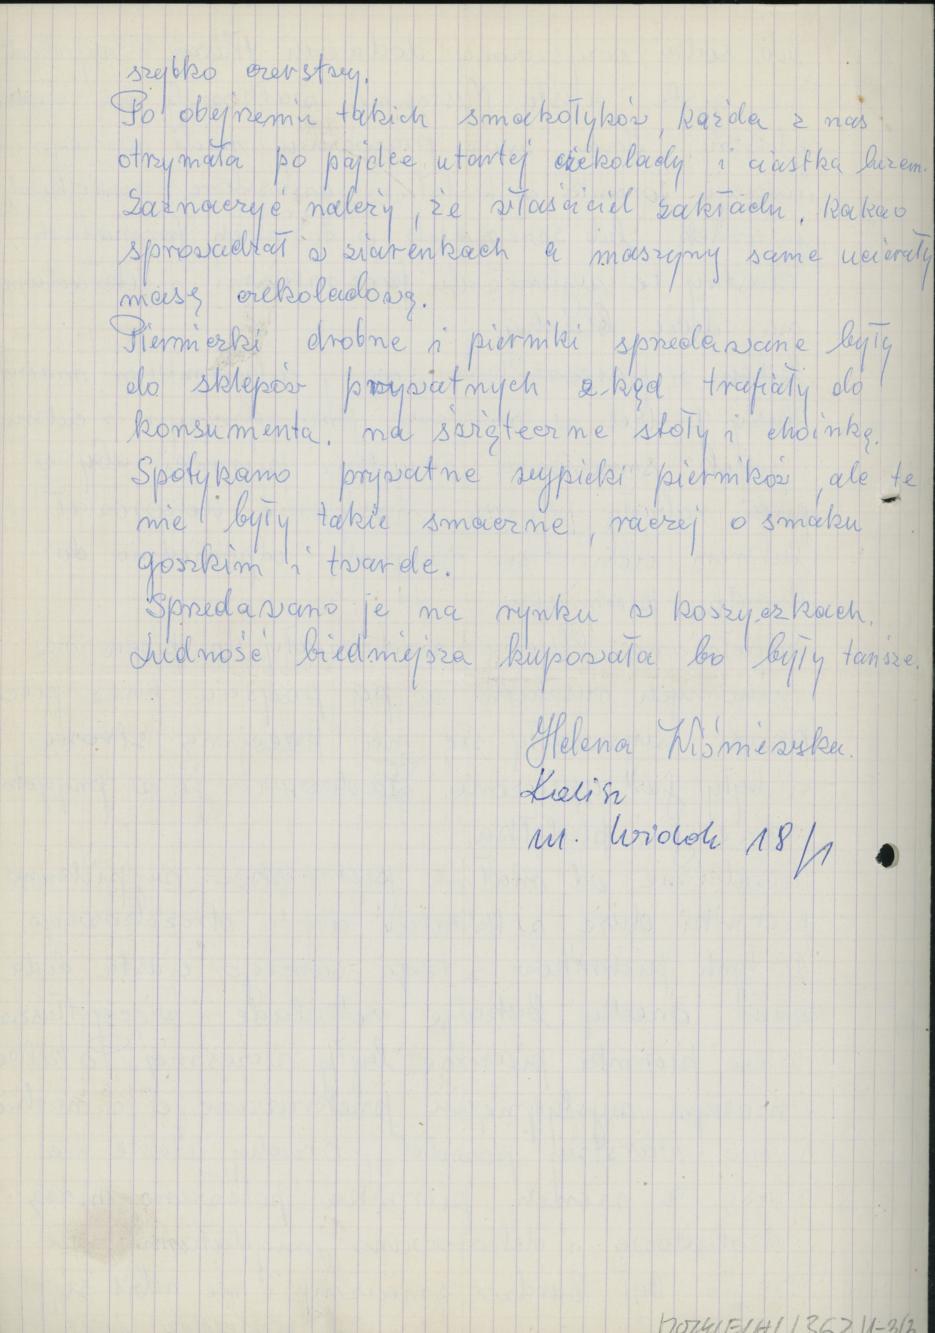 szybko czerstwy.
Po obejrzeniu takich smakołyków, każda z nas
otrzymała po pajdce utartej czekolady i ciastka luzem.
Zaznaczyć należy, że właściciel zakładu, kakao
sprowadzał w ziarenkach a maszyny same ucierały
masę czekoladową.
Pierniczki drobne i pierniki sprzedawane były
do sklepów prywatnych skąd trafiały do
konsumenta. na świąteczne stoły i choinkę.
Spotykano prywatne wypieki pierników, ale te
nie były takie smaczne, raczej o smaku
gorzkim i twarde.
Sprzedawano je na rynku w koszyczkach.
Ludność biedniejsza kupowała bo były tańsze.
Helena
Kalisz
ul. Widok 18/1